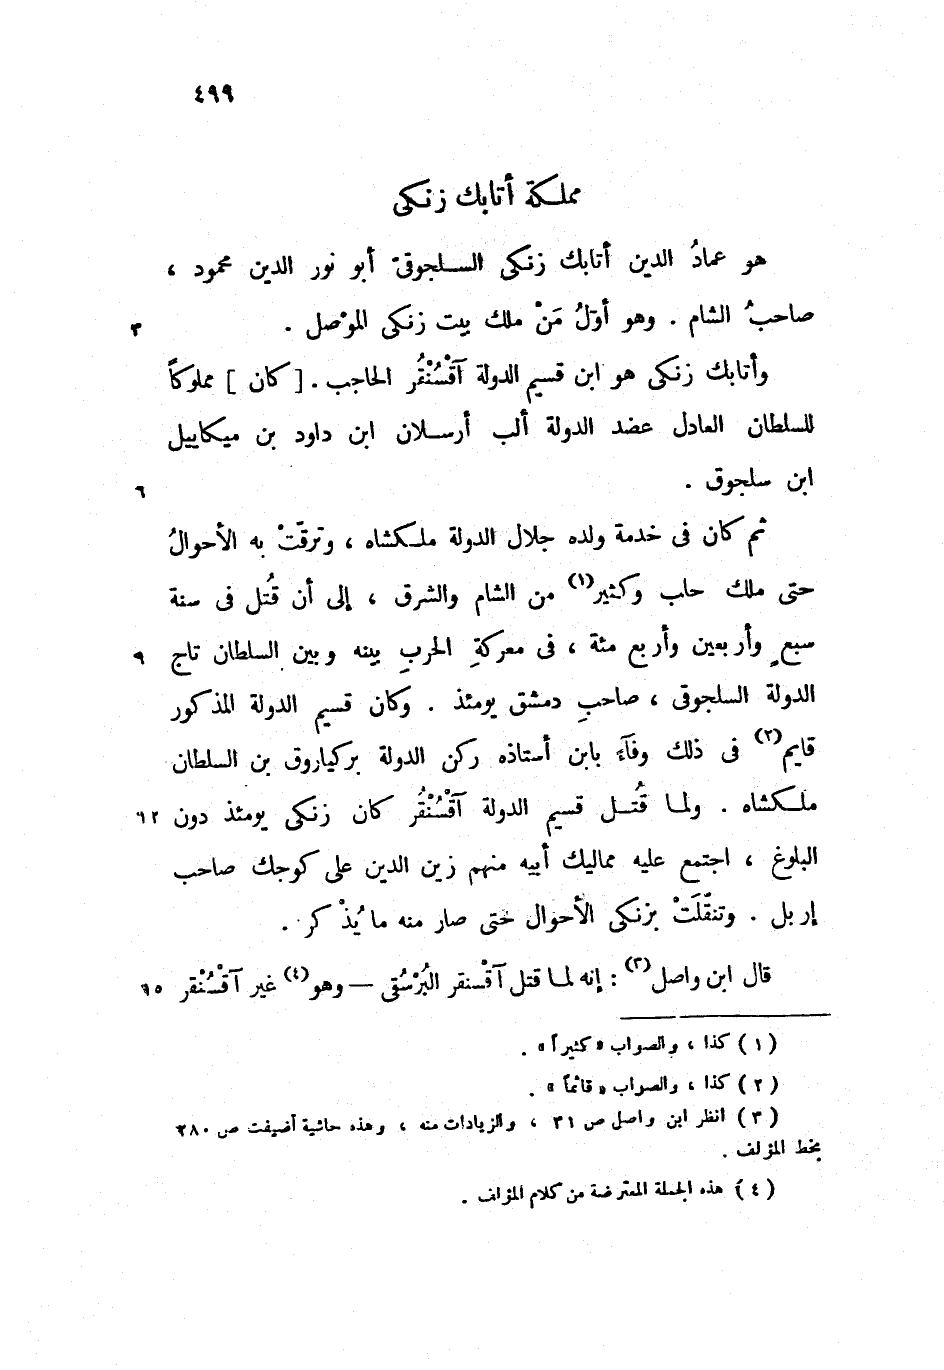 ٤٩٩
مملكة أتابك زنكى
هو عمادُ الدين أتابك زنكى السلجوقىّ أبو نور الدين محمود ،
صاحبُ الشام . وهو أوّلُ مَنْ ملك بيت زنكى الموْصل . ٣
وأتابك زنكى هو ابن قسيم الدولة آقْسُنْقُر الحاجب . [ كان ] مملوكاً
للسلطان العادل عضد الدولة ألب أرسلان ابن داود بن ميكاييل
ابن سلجوق . ٦
ثم كان فى خدمة ولده جلال الدولة ملكشاه ، وترقّتْ به الأحوالُ
حتى ملك حلب وكثير(١) من الشام والشرق ، إلى أن قُتل فى سنة
سبعٍ وأربعين وأربع مئة ، فى معركةِ الحربِ بينه وبين السلطان تاج ٩
الدولة السلجوقى ، صاحبِ دمشق يومئذ . وكان قسيم الدولة المذكور
قايم(٢) فى ذلك وفآءً بابن أستاذه ركن الدولة بركياروق بن السلطان
ملكشاه . ولما قُتل قسيم الدولة آقْسُنْقُر كان زنكى يومئذ دون ١٢
البلوغ ، اجتمع عليه مماليك أبيه منهم زين الدين على كوجك صاحب
إربل . وتنقّلَتْ بزنكى الأحوال حتى صار منه ما يُذْكر .
قال ابن واصل(٣) : إنه لما قتل آقْسنقر البُرْسُقى — وهو(٤) غير آقْسُنْقر ١٥
( ١ ) كذا ، والصواب « كثيراً » .
( ٢ ) كذا ، والصواب « قائماً » .
( ٣ ) انظر ابن واصل ص ٣١ ، والزيادات منه ، وهذه حاشية أضيفت ص ٢٨٠
بخط المؤلف .
( ٤ ) هذه الجملة المعترضة من كلام المؤلف .